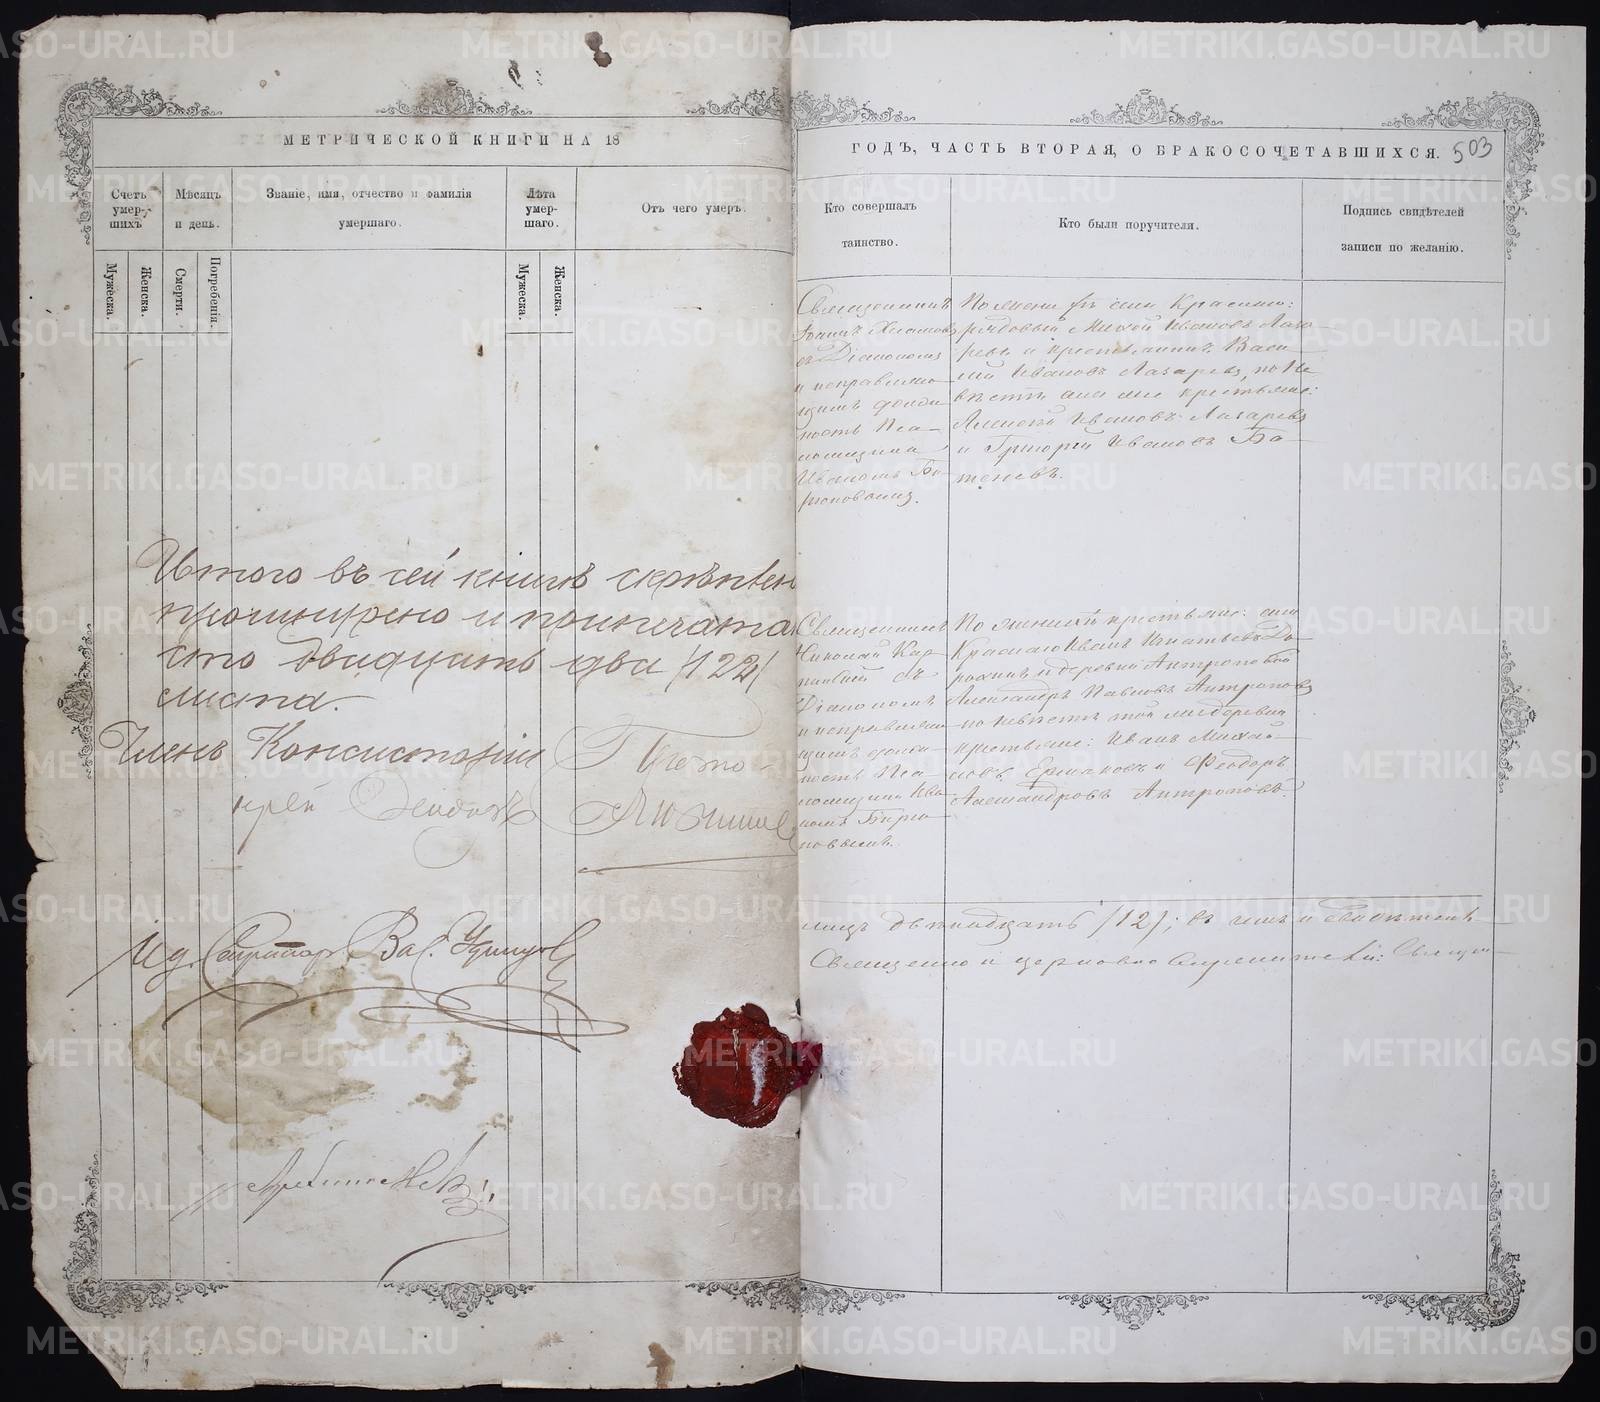 МЕТРИЧЕСКОЙ КНИГИ НА 18
Счетъ умер- шихъ
Мѣсяцъ и день.
Званіе, имя, отчество и фамилія умершаго.
Лѣта умер- шаго.
Отъ чего умеръ.
Мужеска.
Женска.
Смерти.
Погребенія.
Мужеска.
Женска.
Итого въ сей книгѣ скрѣплен
прошнурено и припечата
сто двадцать два /122/
листа.
Членъ Консисторіи Прото-
іерей
И. д. Секретаря Вас.
ГОДЪ, ЧАСТЬ ВТОРАЯ, О БРАКОСОЧЕТАВШИХСЯ.
503
Кто совершалъ таинство.
Кто были поручители.
Подпись свидѣтелей записи по желанію.
Священникъ
Іоаннъ
съ Діакономъ
и исправляю-
щимъ долж-
ность Пса-
ломщика
Иваномъ Би-
рюковымъ.
По женихѣ села
рядовый Ивановъ Лаза-
ревъ и крестьянинъ Васи-
лій Ивановъ Лазаревъ, по не-
вѣстѣ крестьяне:
Алексѣй Ивановъ Лазаревъ
и Григорій Ивановъ Бо-
теневъ.
Священникъ
Николай Кар-
пинскій съ
Діакономъ
и исправляю-
щимъ долж-
ность Пса-
ломщика Ива-
номъ Бирю-
ковымъ.
По женихѣ крестьяне: села
Краснаго Иванъ Игнатьевъ До-
рохинъ и деревни Антроповой
Александръ Павловъ Антроповъ
по невѣстѣ той же деревни
крестьяне: Иванъ Михай-
ловъ Ермаковъ и Феодоръ
Александровъ Антроповъ.
лицъ двѣнадцать /12/; въ чемъ и свидѣтель-
Священно и церковно служители: Священ-
METRIKI.GASO-URAL.RU